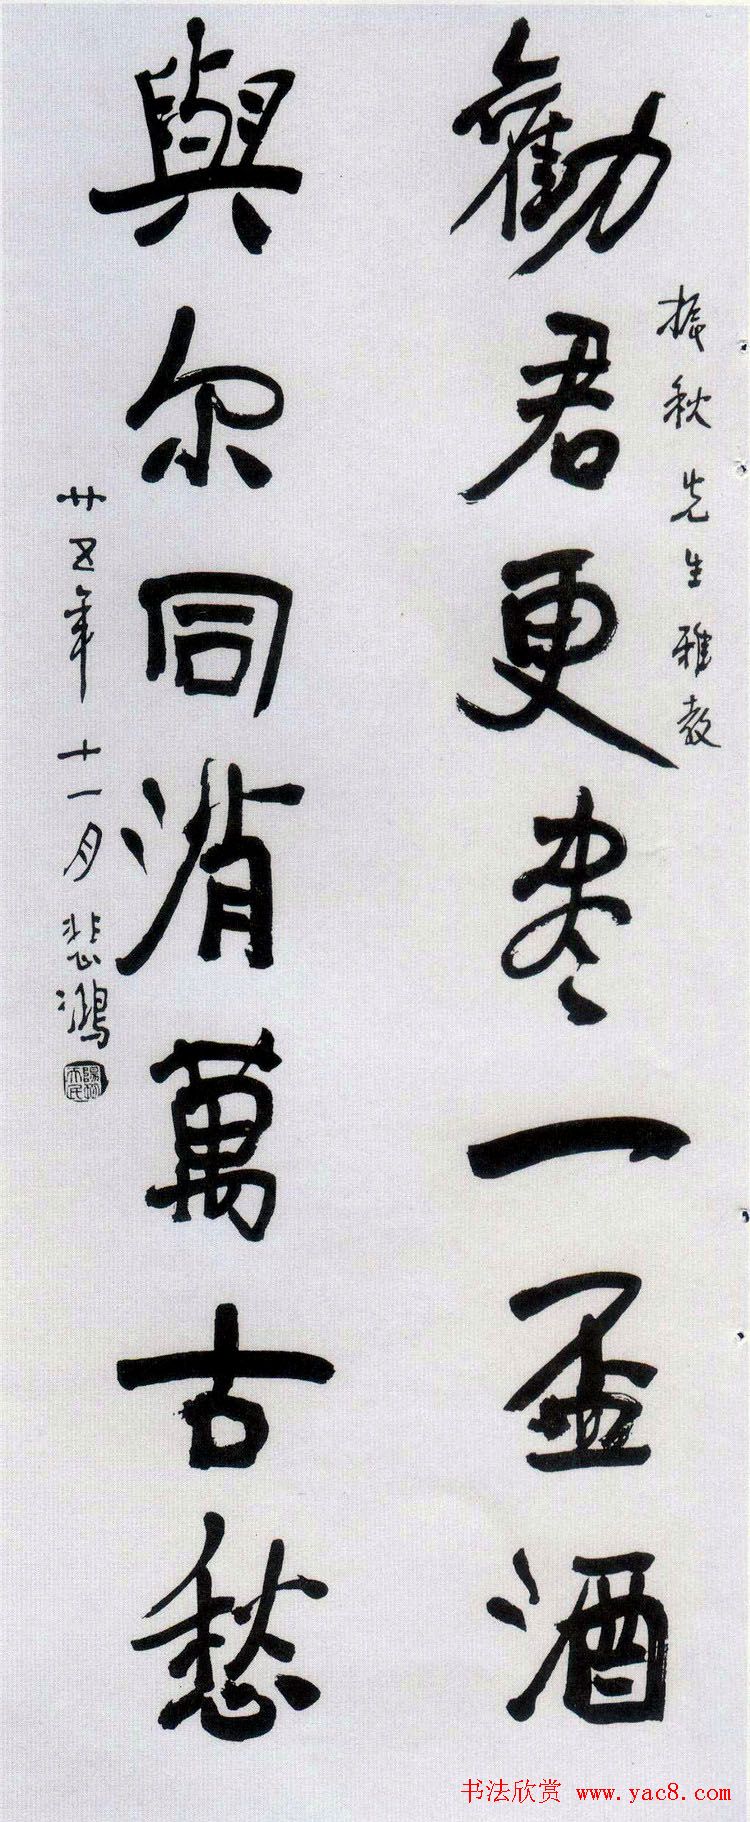 振秋先生雅教
勸君更尽一盃酒
與尔同消萬古愁
廿五年十一月悲鴻
书法欣赏 www.yac8.com